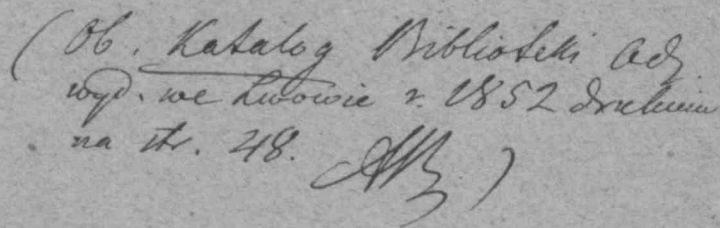 (Ob. Katalog Biblioteki Adj.
wyd. we Lwowie r. 1852 drukiem
na str. 48.